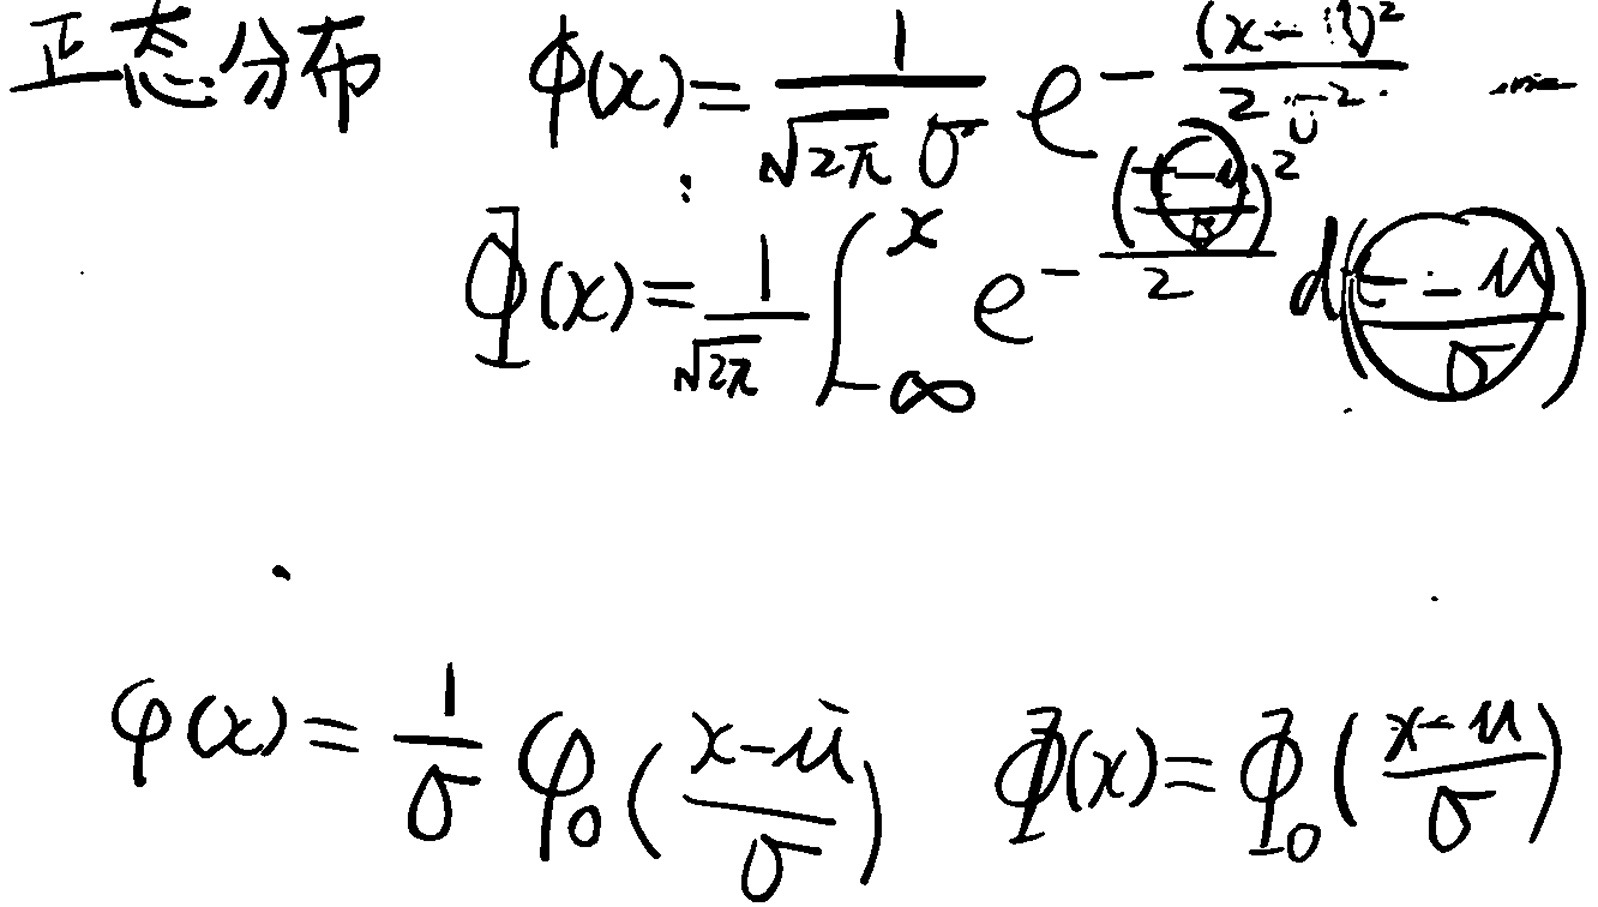 正态分布 φ(x) = \frac{1}{\sqrt{2π} σ} e^{-\frac{(x-μ)^2}{2σ^2}}
Φ(x) = \frac{1}{\sqrt{2π}} \int_{-∞}^{x} e^{-\frac{(\frac{t-μ}{σ})^2}{2}} d(\frac{t-μ}{σ})
φ(x) = \frac{1}{σ} φ_0(\frac{x-μ}{σ}) Φ(x) = Φ_0(\frac{x-μ}{σ})